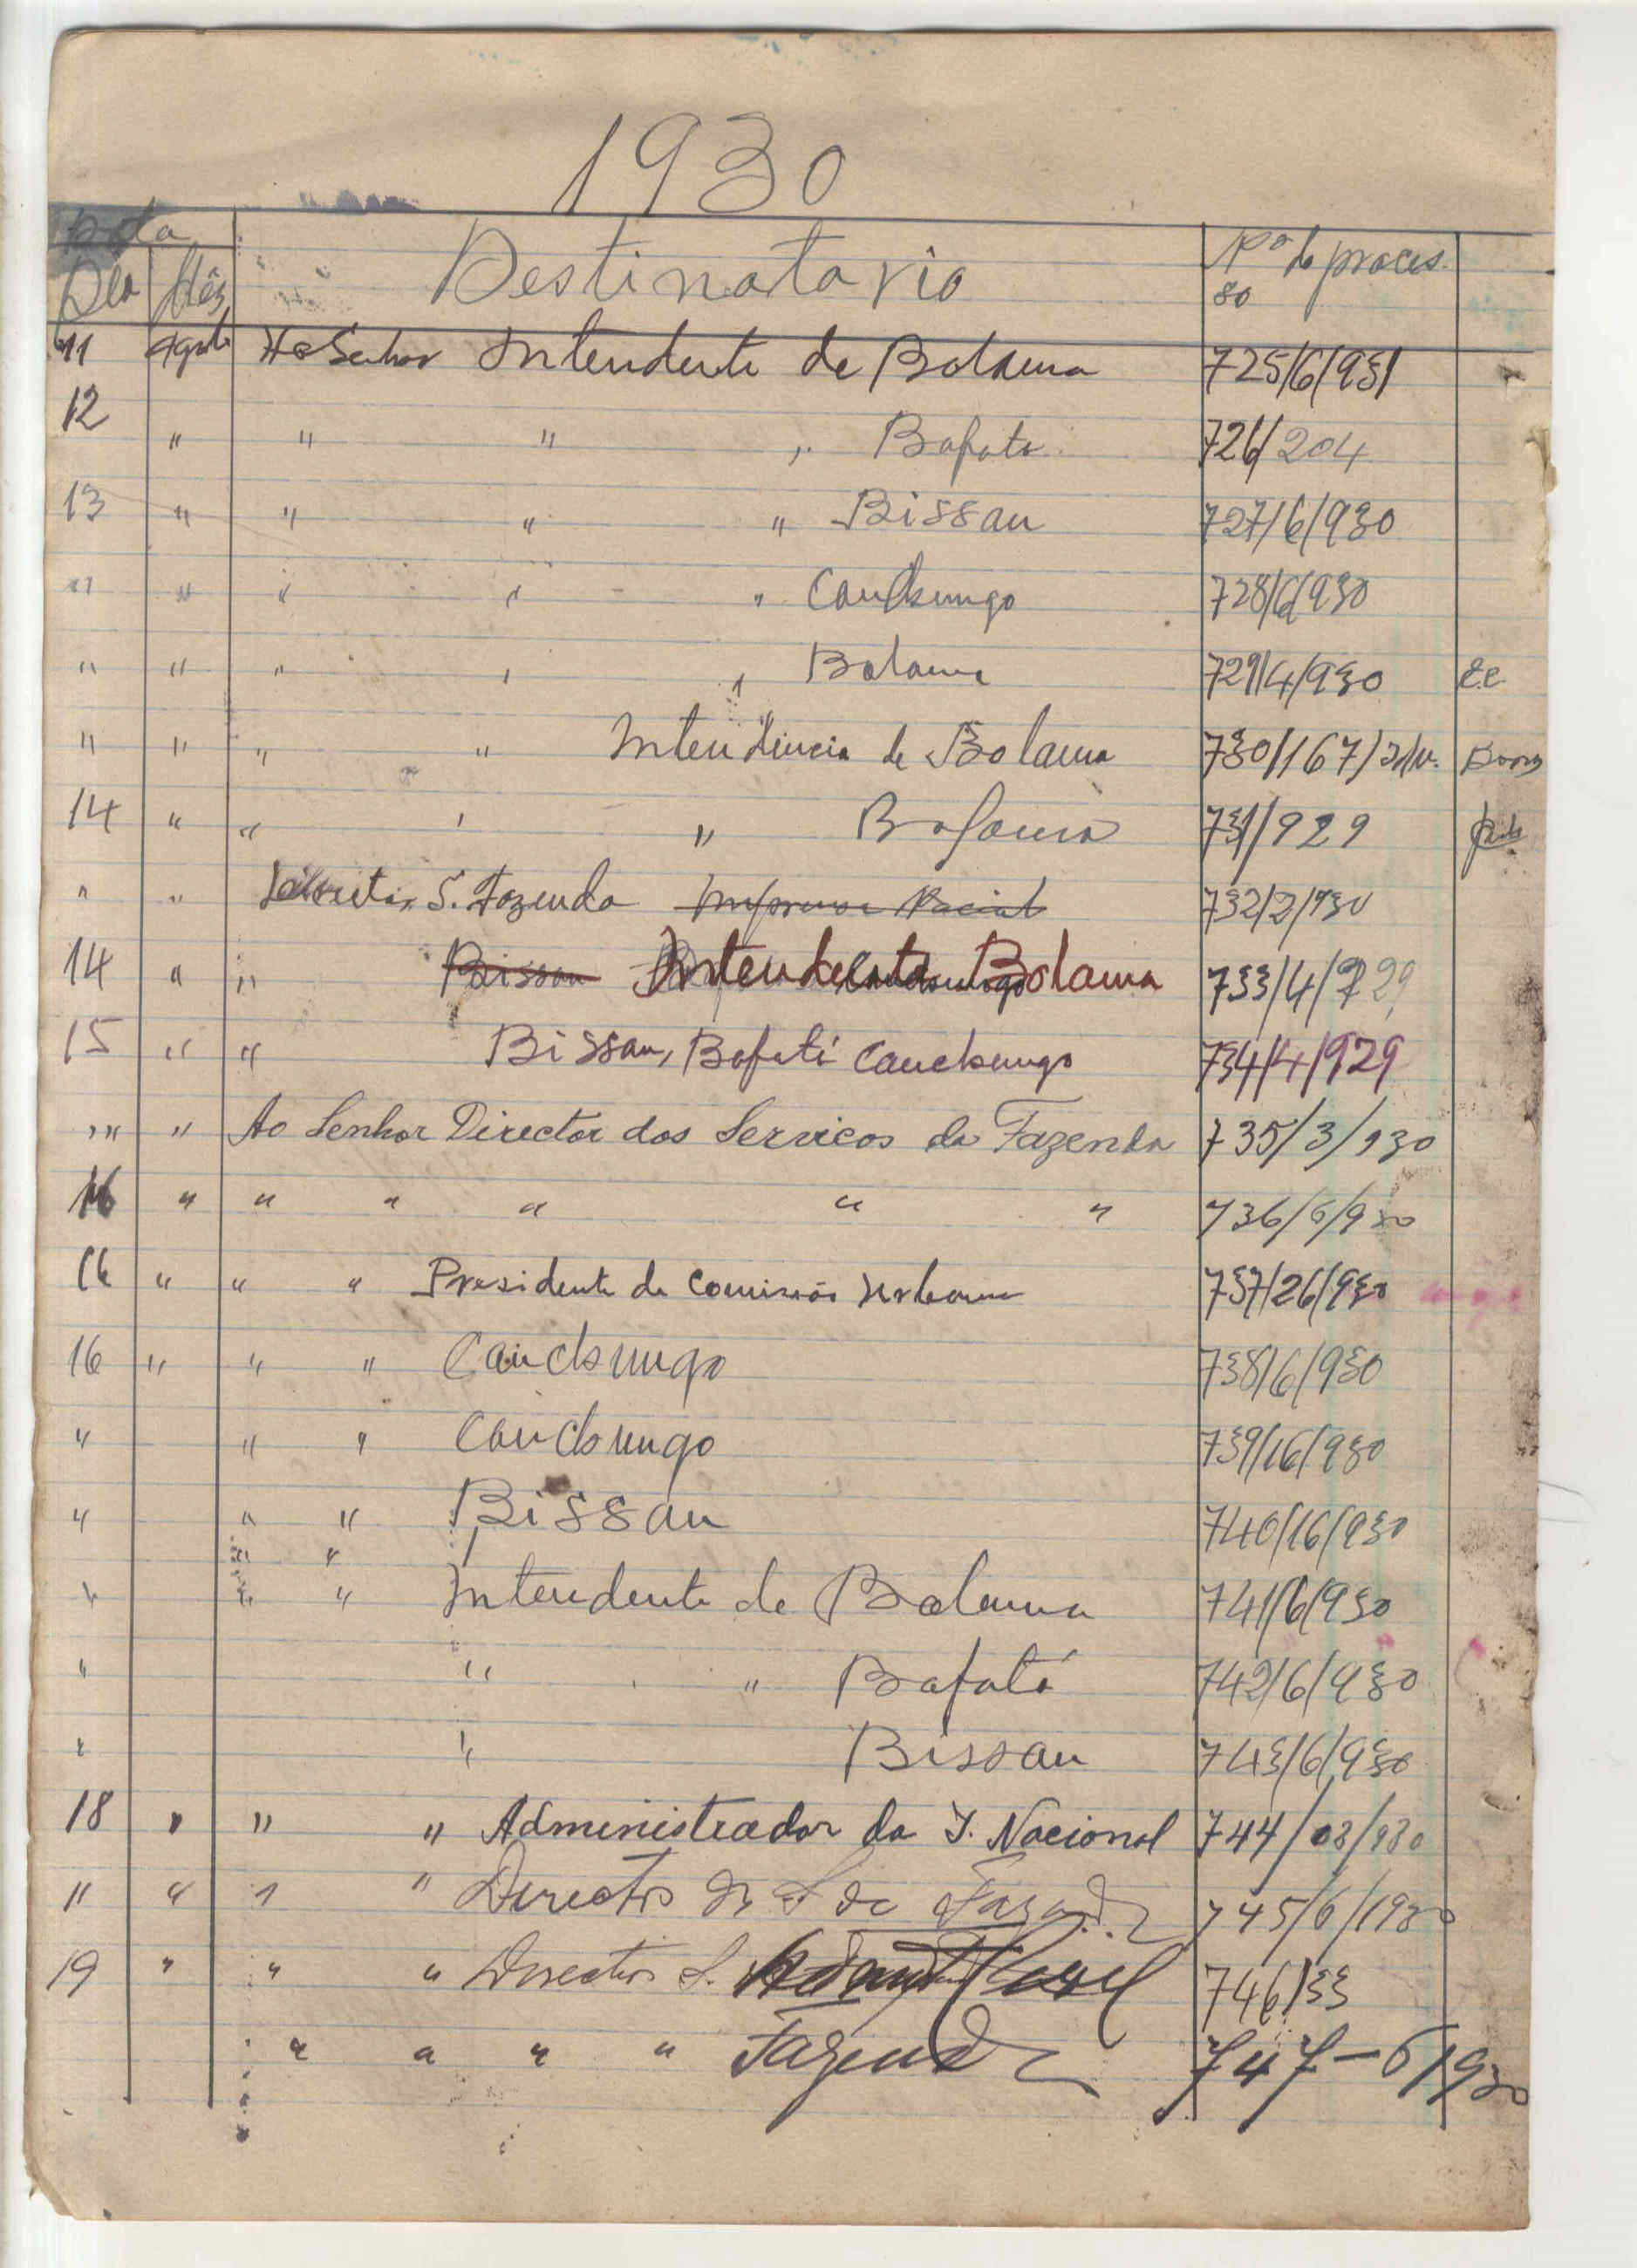 1930
Data
Dia Mês Destinatario Nº do proces
so
11 Agosto Ao Senhor Intendente de Bolama 725/6/931
12 " " " " Bafata 726/204
13 " " " " Bissau 727/6/930
" " " " " Canchungo 728/6/930
" " " " " Bolama 729/4/930
" " " " Intendencia de Bolama 730/167/
14 " " " " 731/929
" " S. Fazenda 732/2/930
14 " " Bissau Intendente Bolama 733/4/929
15 " " Bissau, Bafatá Canchungo 734/4/929
" " Ao Senhor Director dos Servicos da Fazenda 735/3/930
16 " " " " " " 736/6/930
16 " " " Presidente da Comissão Urbana 737/26/930
16 " " " Canchungo 738/6/930
" " " Canchungo 739/16/930
" " " Bissau 740/16/930
" "
" " " Intendente de Bolama 741/6/930
" " " Bafatá 742/6/930
" " Bissau 743/6/930
18 " " " Administrador da I. Nacional 744/03/930
" " " " Director de S. de Fazenda 745/6/1930
19 " " " Director S. 746/33
" " " " Fazenda 747-6/930